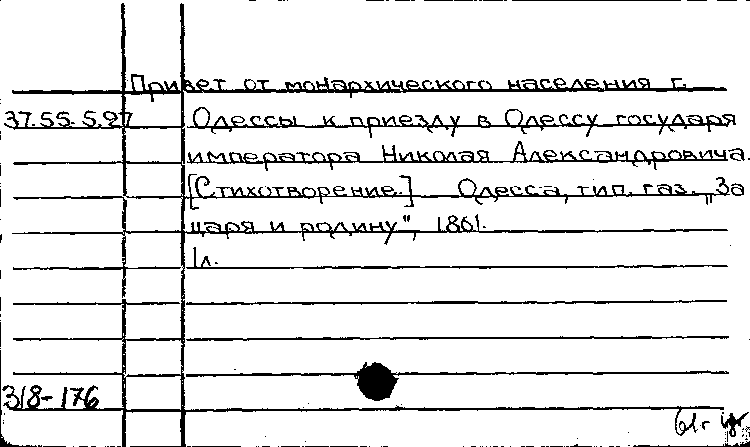 Привет от монархического населения г.
37.55.5.97 Одессы к приезду в Одессу государя
императора Николая Александровича.
[Стихотворение.] Одесса, тип. газ. „За
царя и родину", 1861.
1л.
318-176
61г.